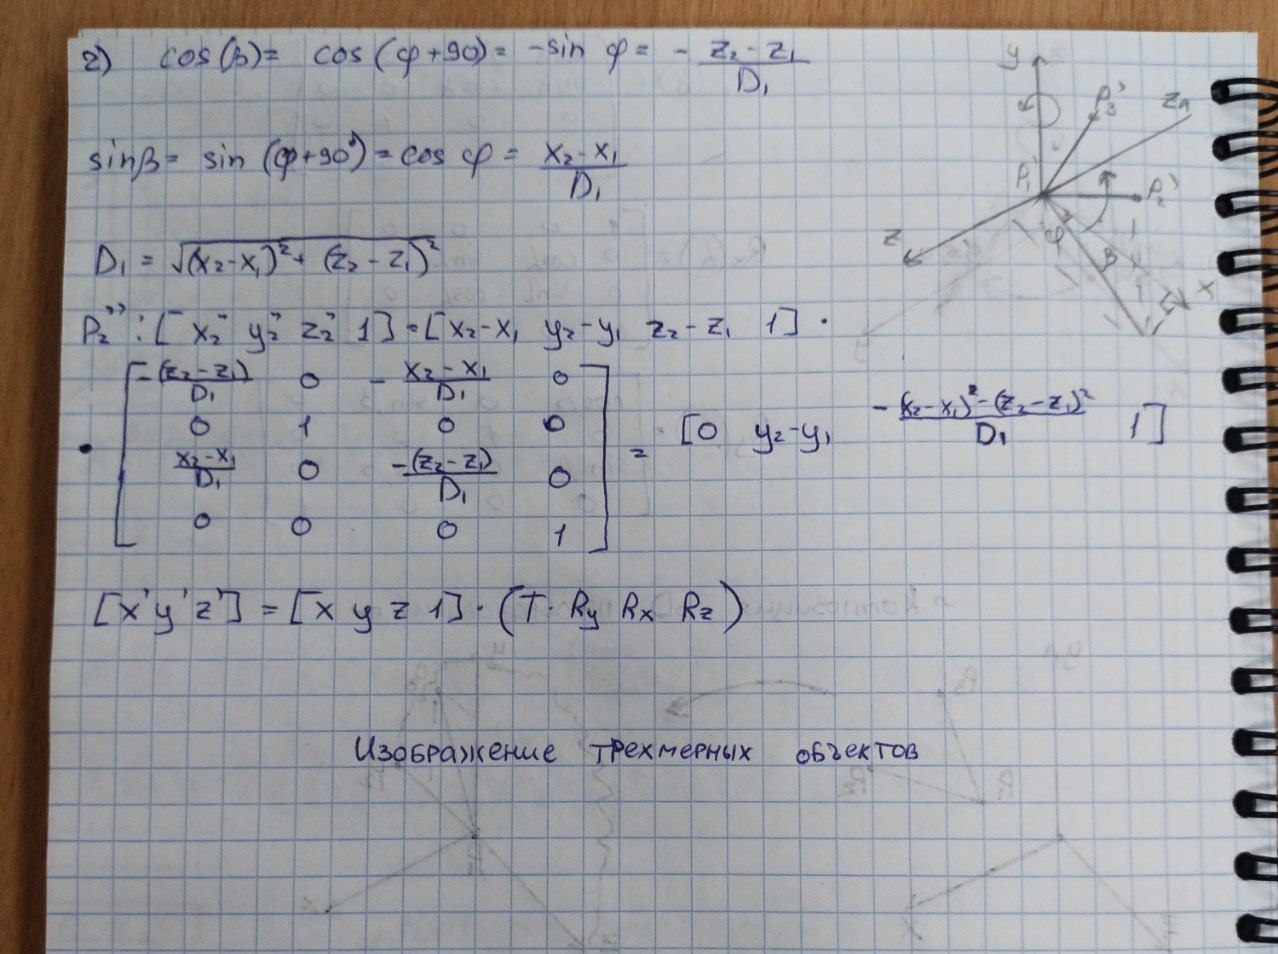 2) cos(β) = cos(φ+90) = -sin φ = - (z₂ - z₁)/D₁
sinβ = sin (φ+90°) = cos φ = (x₂ - x₁)/D₁
D₁ = √((x₂-x₁)² + (z₂ - z₁)²)
P₂'' : [ x₂'' y₂'' z₂'' 1 ] = [x₂-x₁ y₂-y₁ z₂-z₁ 1] ·
· [ -(z₂-z₁)/D₁ 0 -(x₂-x₁)/D₁ 0
0 1 0 0
(x₂-x₁)/D₁ 0 -(z₂-z₁)/D₁ 0
0 0 0 1 ] = [0 y₂-y₁ -((x₂-x₁)²-(z₂-z₁)²)/D₁ 1]
[x' y' z'] = [x y z 1] · (T · Ry Rx Rz)
Изображение трехмерных объектов
y
P₃'
P₁'
P₂'
z
φ
β
x